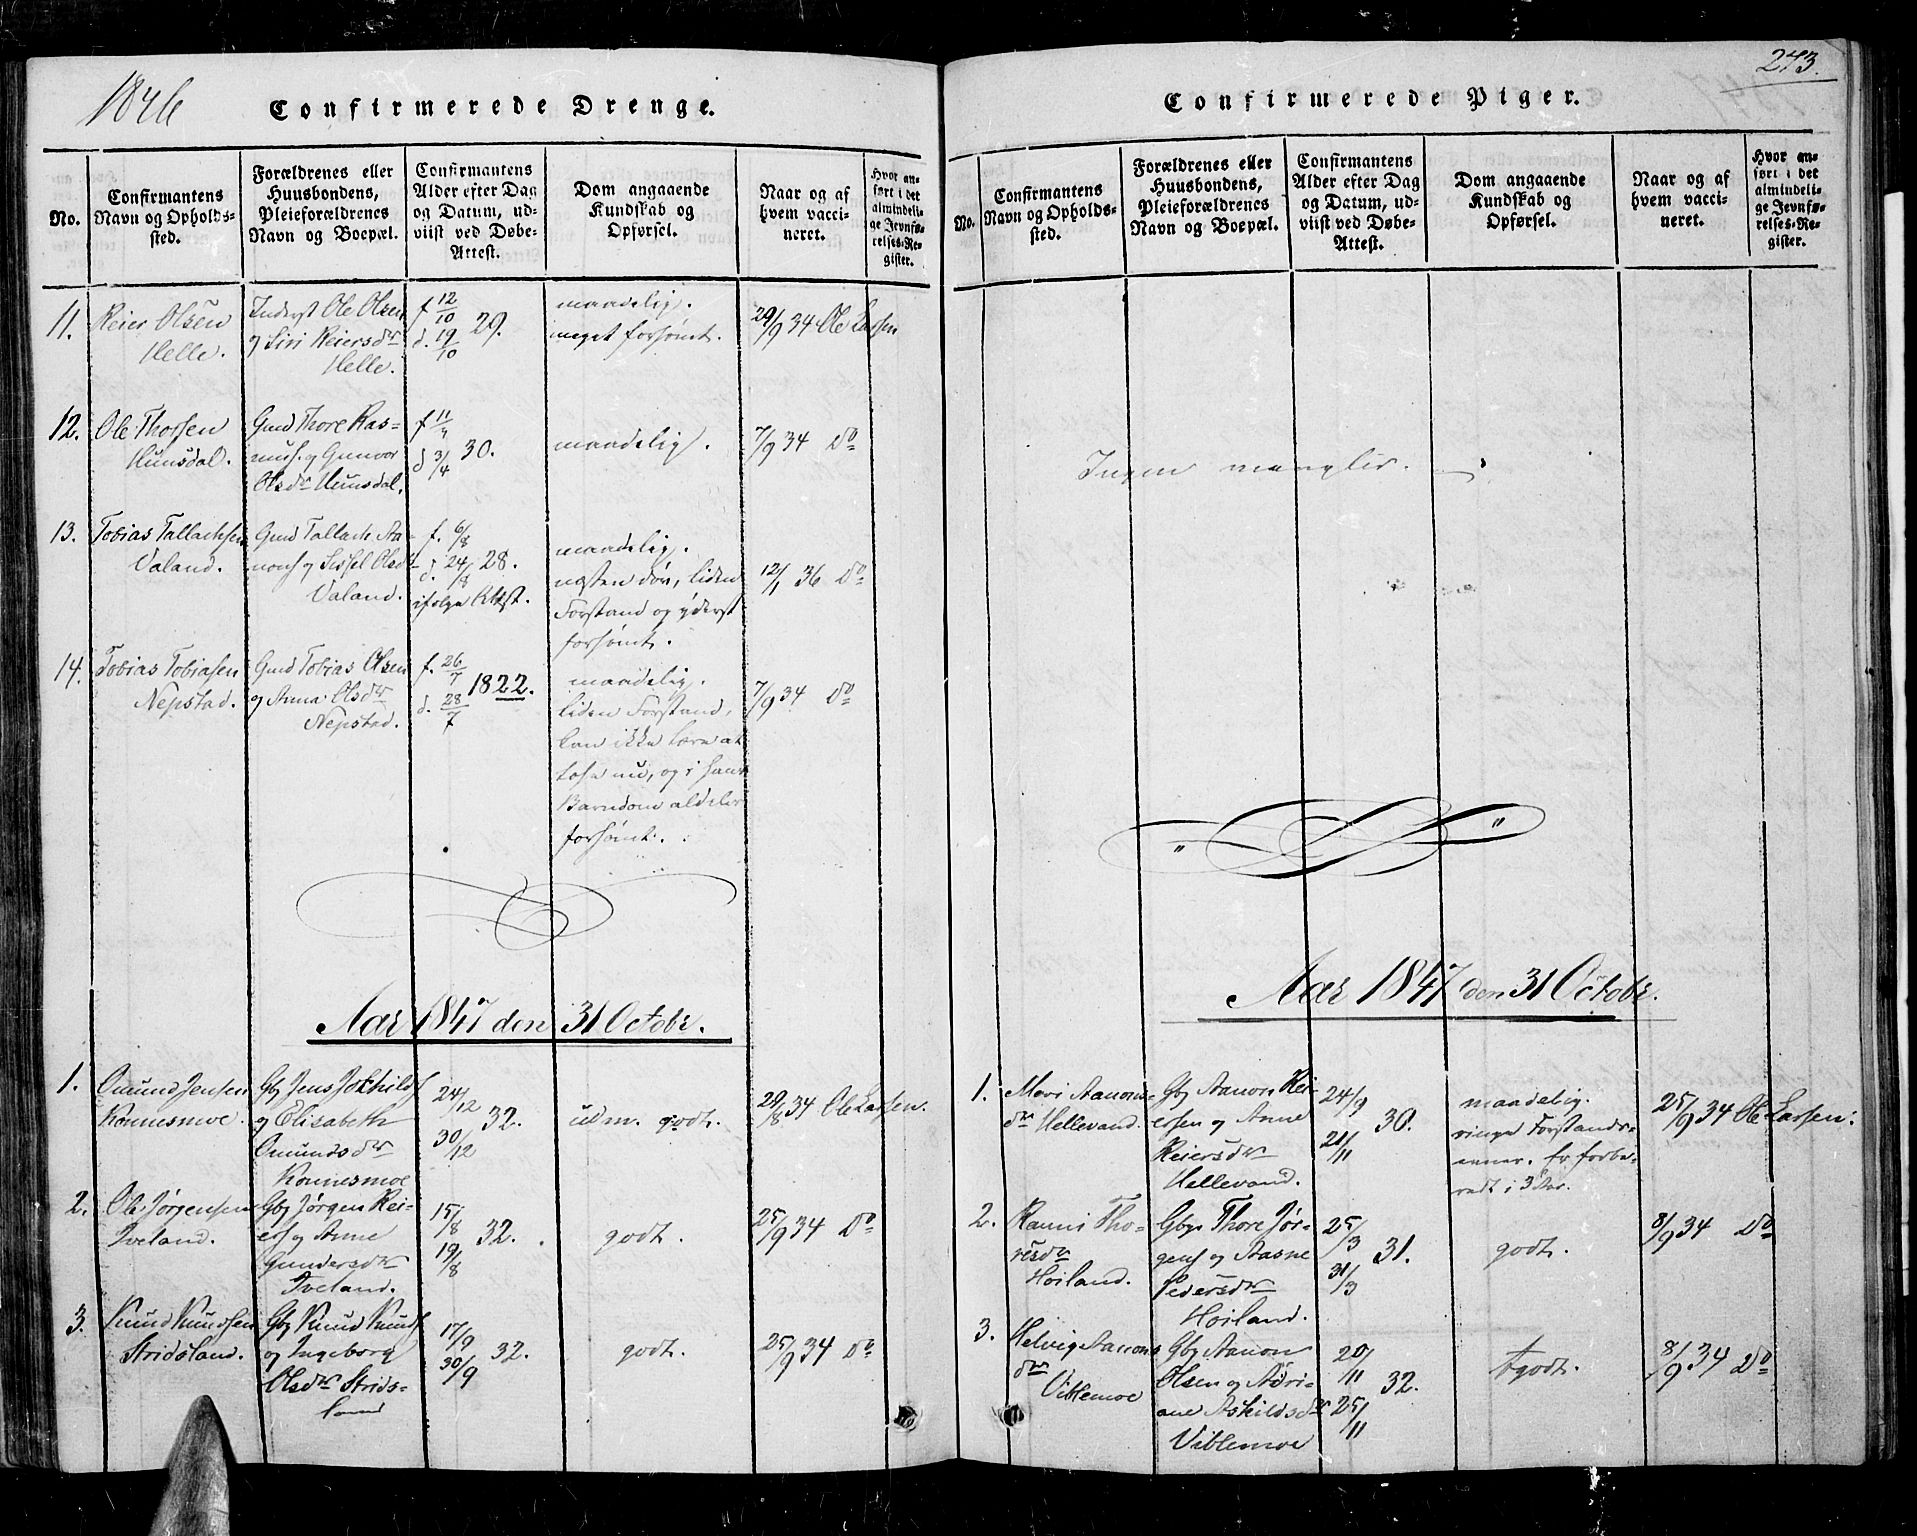 1846
Confirmerede Drenge.
No.
Confirmantens
Navn og Opholds-
sted.
Forældrenes eller
Huusbondens,
Pleieforældrenes
Navn og Boepæl.
Confirmantens
Alder efter Dag
og Datum, ud-
viist ved Døbe-
Attest.
Dom angaaende
Kundskab og
Opførsel.
Naar og af
hvem vacci-
neret.
Hvor an-
ført i det
almindeli-
ge Jevnfø-
relses-Re-
gister.
11.
Reier Olsen
Helle.
Inderst Ole Olsen
og Siri Reiersdr
Helle.
f 12/10
d. 19/10 29.
maadelig.
meget forsømt.
29/9 34 Ole Larsen
12.
Ole Thorsen
Hunsdal.
Gmd Thore Ras-
mus. og Gunvor
Olsdr Hunsdal.
f 11/4
d 3/4 30.
maadelig.
7/9 34 Do
13.
Tobias Tallachsen
Valand.
Gmd Tallach Aa-
nons og Sissel Olsd
Valand.
f. 6/8
d. 24/8 28.
ifølge Attest.
maadelig.
næsten døv, liden
Forstand og yderst
forsømt.
12/1 36 Do
14.
Tobias Tobiasen
Nepstad.
Gmd Tobias Olsen
og Anna Olsdr
Nepstad.
f. 26/7
d. 28/7 1822.
maadelig.
liden Forstand,
kan ikke lære at
læse nu, og i hans
Barndom aldeles
forsømt.
7/9 34 Do
Aar 1847 den 31 Octobr.
1.
Omund Jensen
Konnesmoe.
Gbr Jens
og Elisabeth
Omundsdr
Konnesmoe
24/12
30/12 32.
udm. godt.
29/8 34 Ole Larsen.
2.
Ole Jørgensen
Tveland.
Gbr Jørgen Rei-
ers og Anne
Gundersdr
Tveland.
15/8
19/8 32.
godt.
25/9 34 Do
3.
Knud Knudsen
Stridsland.
Gbr Knud Knuds
og Ingeborg
Olsdr Strids-
land
17/9
30/9 32.
godt.
25/9 34 Do
273.
Confirmerede Piger.
No.
Confirmantens
Navn og Opholds-
sted.
Forældrenes eller
Huusbondens,
Pleieforældrenes
Navn og Boepæl.
Confirmantens
Alder efter Dag
og Datum, ud-
viist ved Døbe-
Attest.
Dom angaaende
Kundskab og
Opførsel.
Naar og af
hvem vacci-
neret.
Hvor an-
ført i det
almindeli-
ge Jevnfø-
relses-Re-
gister.
Ingen mangler.
Aar 1847 den 31 Octobr.
1.
Meri Aanons-
dr Hellevand.
Gbr Aanon Rei-
ersen og Anne
Reiersdr
Hellevand.
24/9
21/11 30.
maadelig.
ringe Forstands-
evner. Er forbe-
redt i 3 Aar.
25/9 34 Ole Larsen.
2.
Ranni Tho-
resdr
Høiland.
Gbr Thore Jør-
gens og Aasne
Pedersdr
Høiland.
25/3
31/3 31.
godt.
8/9 34 Do
3.
Helvig Aanons
dr
Viblemoe
Gbr Aanon
Olsen og Adri-
ane Askildsdr
Viblemoe
20/11
25/11 32.
godt.
8/9 34 Do